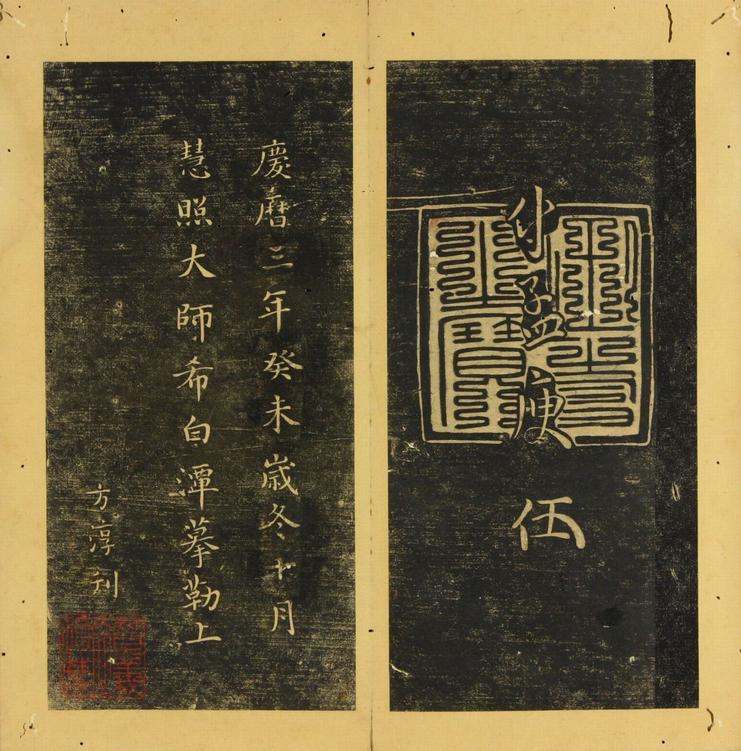 付孟庾
伍
慶曆三年癸未歲冬十月
慧照大師希白潭摹勒上
方淳刊